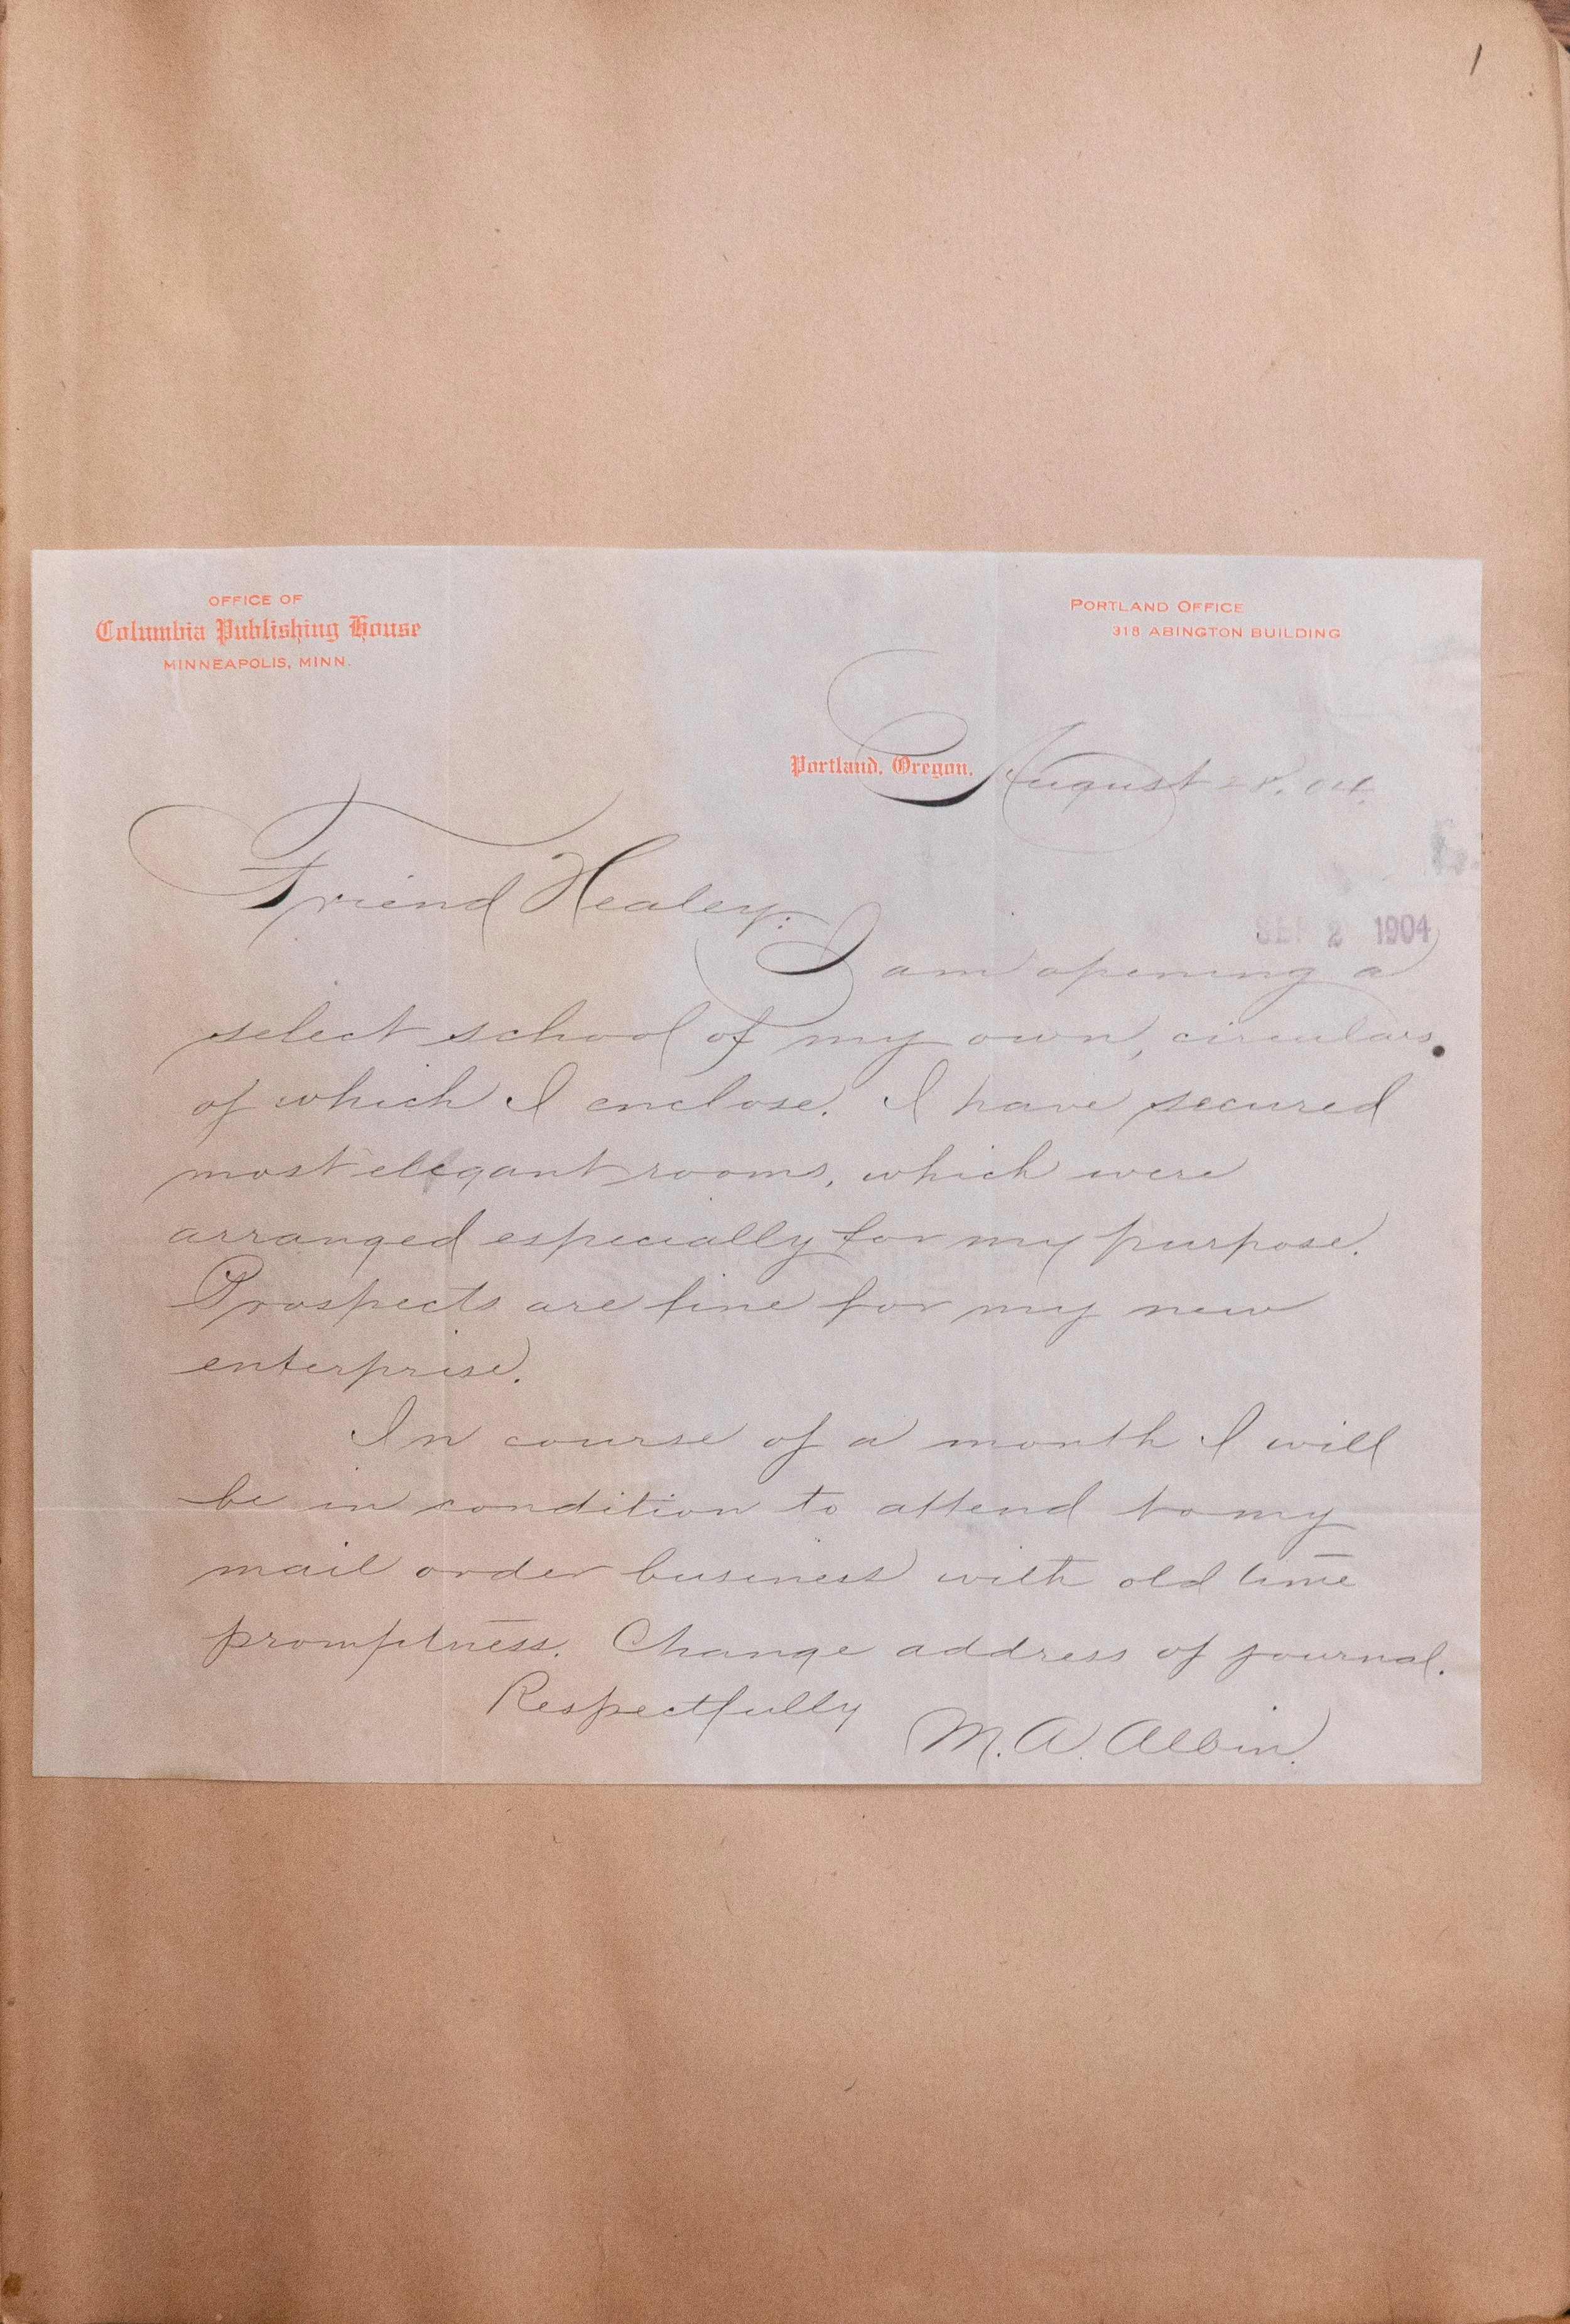 1
OFFICE OF
Columbia Publishing House
MINNEAPOLIS, MINN.
PORTLAND OFFICE
318 ABINGTON BUILDING
Portland, Oregon, August 28, 04.
Friend Healey:
SEP 2 1904
I am opening a
select school of my own, circulars
of which I enclose. I have secured
most elegant rooms, which were
arranged especially for my purpose.
Prospects are fine for my new
enterprise.
In course of a month I will
be in condition to attend to my
mail order business with old time
promptness. Change address of journal.
Respectfully
M. A. Albin.